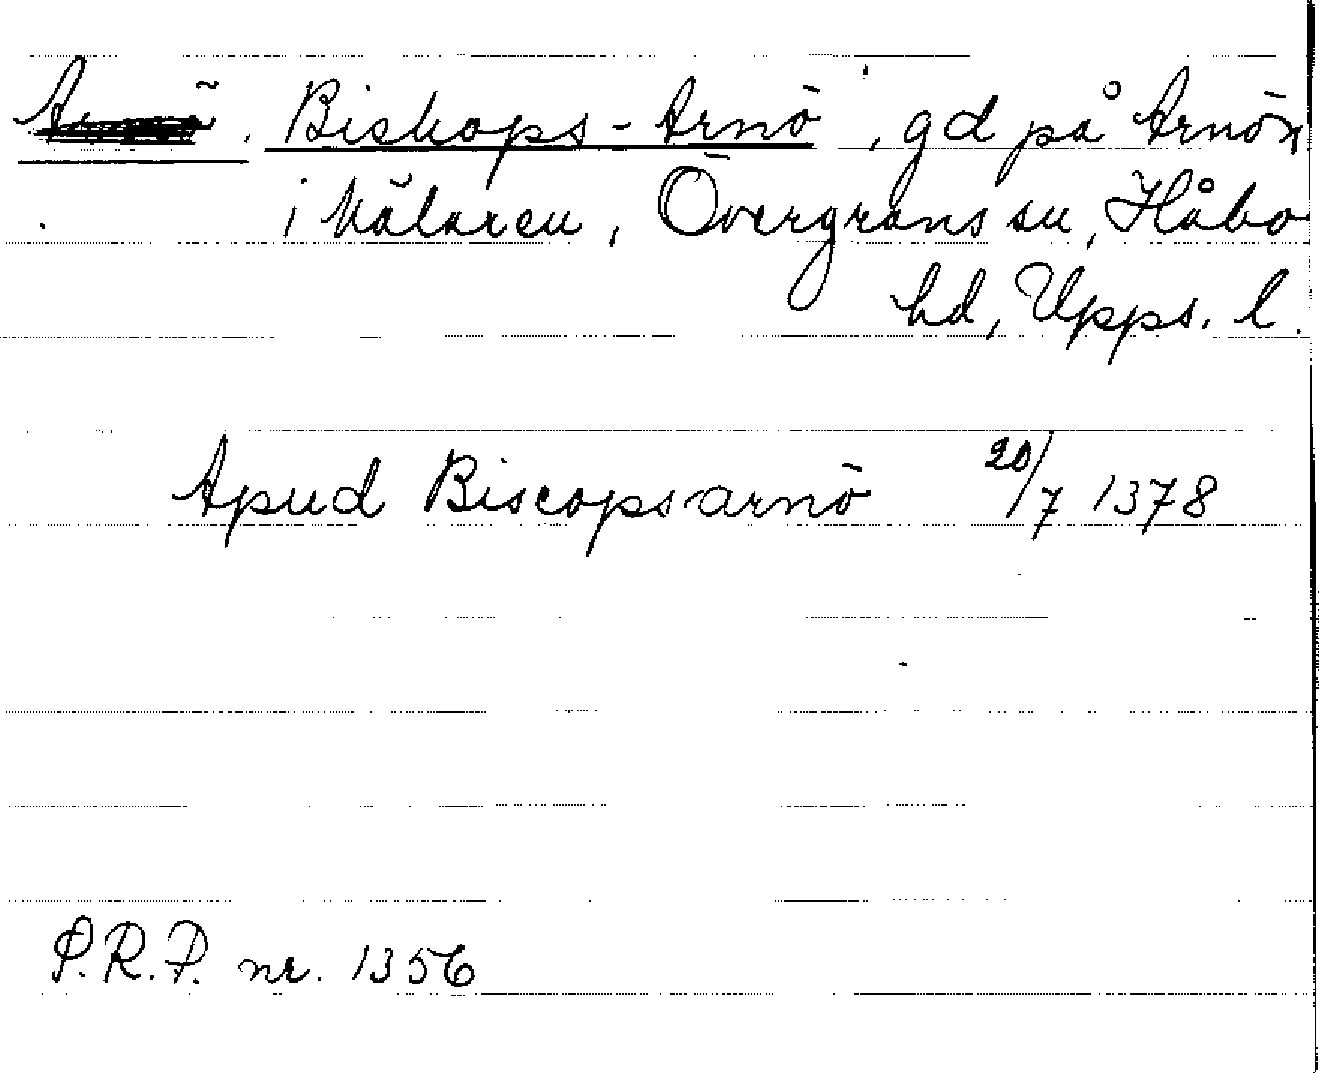 Biskops-Arnö, gd på Arnön
i Mälaren, Övergrans sn, Håbo
hd, Upps. l.
Apud Biscopsarnö 20/7 1378
P.R.P. nr. 1356